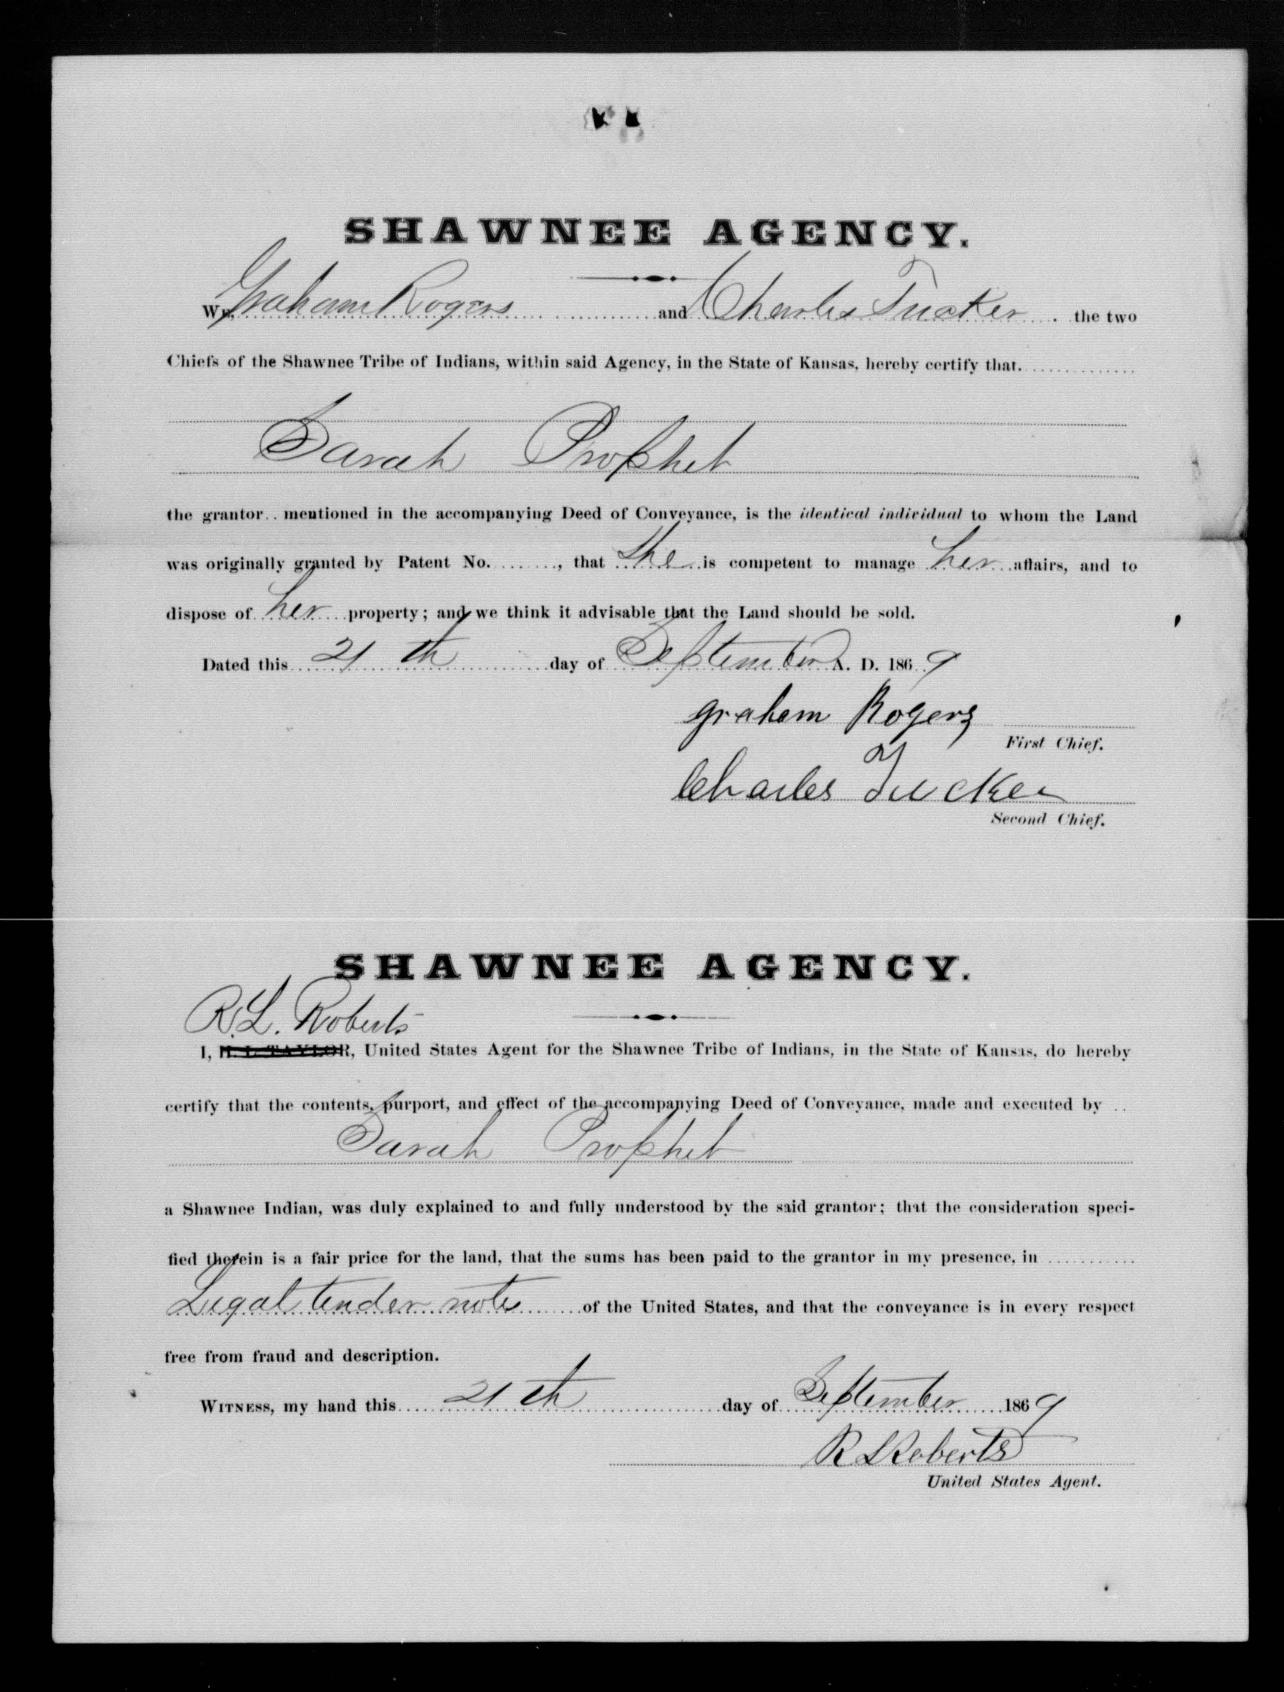 SHAWNEE AGENCY.
We, Graham Rogers and Charles Tucker the two
Chiefs of the Shawnee Tribe of Indians, within said Agency, in the State of Kansas, hereby certify that
Sarah Prophet
the grantor mentioned in the accompanying Deed of Conveyance, is the identical individual to whom the Land
was originally granted by Patent No. ......., that she is competent to manage her affairs, and to
dispose of her property; and we think it advisable that the Land should be sold.
Dated this 21 th day of September A. D. 1869
graham Rogers
First Chief.
Charles Tucker
Second Chief.
SHAWNEE AGENCY.
R. L. Roberts
I, H. L. TAYLOR, United States Agent for the Shawnee Tribe of Indians, in the State of Kansas, do hereby
certify that the contents, purport, and effect of the accompanying Deed of Conveyance, made and executed by
Sarah Prophet
a Shawnee Indian, was duly explained to and fully understood by the said grantor; that the consideration speci-
fied therein is a fair price for the land, that the sums has been paid to the grantor in my presence, in
Legal tender notes of the United States, and that the conveyance is in every respect
free from fraud and description.
WITNESS, my hand this 21 th day of September 1869
R L Roberts
United States Agent.